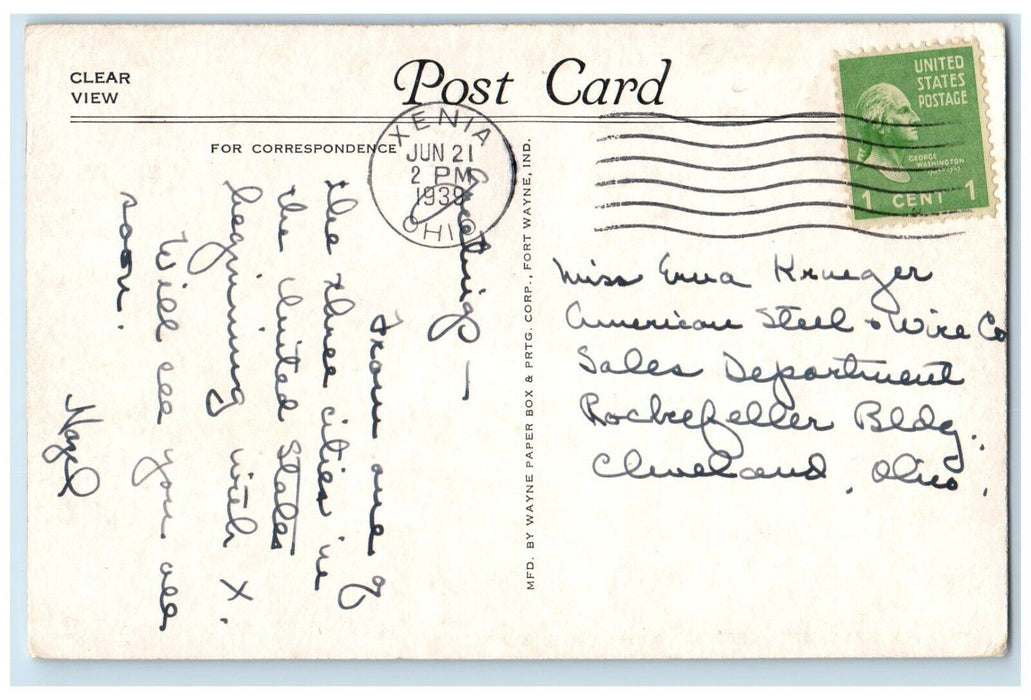 CLEAR
VIEW
Post Card
FOR CORRESPONDENCE
XENIA
JUN 21
2 PM
1939
OHIO
UNITED
STATES
POSTAGE
GEORGE
WASHINGTON
1 CENT 1
Greetings —
From one of
the three cities in
the United States
beginning with X.
Will see you all
soon.
Hazel
MFD. BY WAYNE PAPER BOX & PRTG. CORP., FORT WAYNE, IND.
Miss Erna Krueger
American Steel & Wire Co
Sales Department
Rockefeller Bldg.
Cleveland, Ohio.